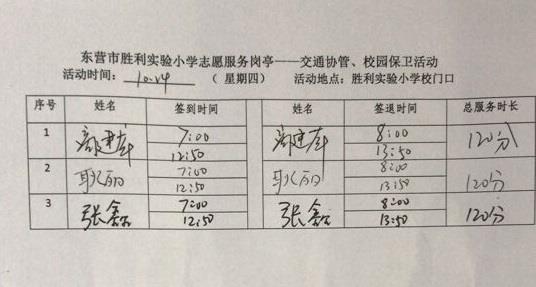 东营市胜利实验小学志愿服务岗亭——交通协管、校园保卫活动
活动时间： 10.24 （ 星期四） 活动地点：胜利实验小学校门口
序号 姓名 签到时间 姓名 签退时间 总服务时长
1 7:00 8:00 120分
12:50 13:50
2 耿丽 7:00 耿丽 8:00 120分
12:50 13:50
3 张鑫 7:00 张鑫 8:00 120分
12:50 13:50